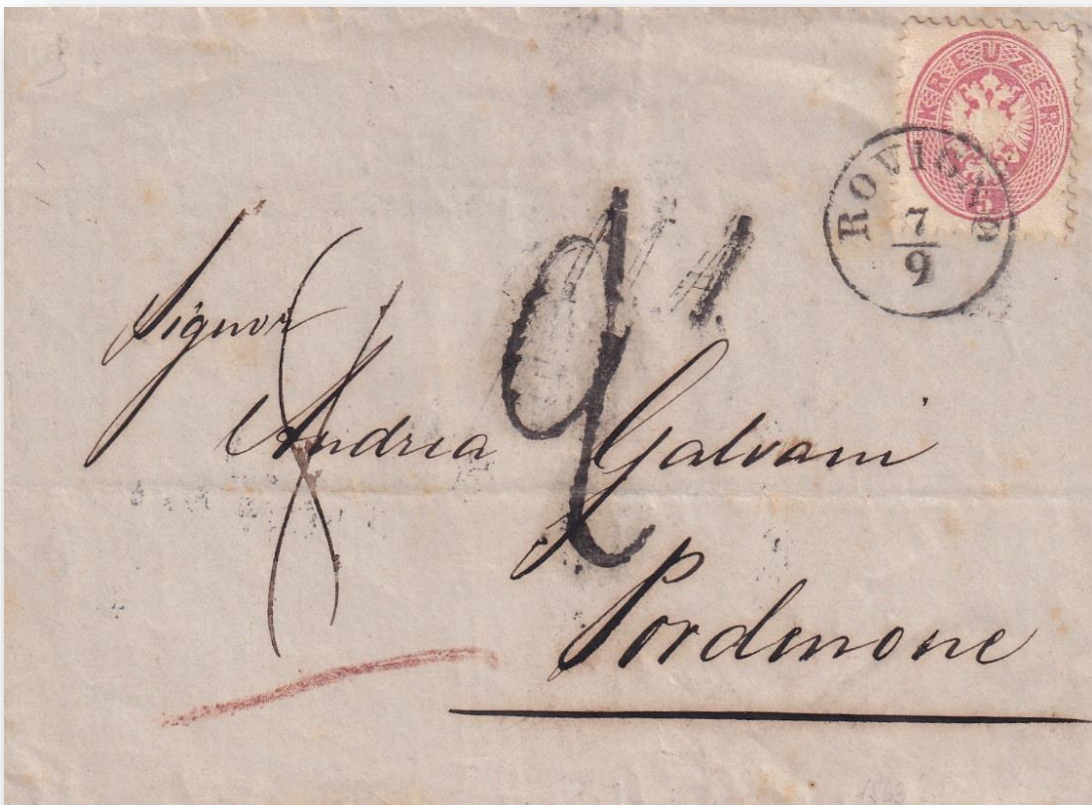 KREUZER
5
ROVIGO
7
9
Signor
Andrea Galvani
Pordenone